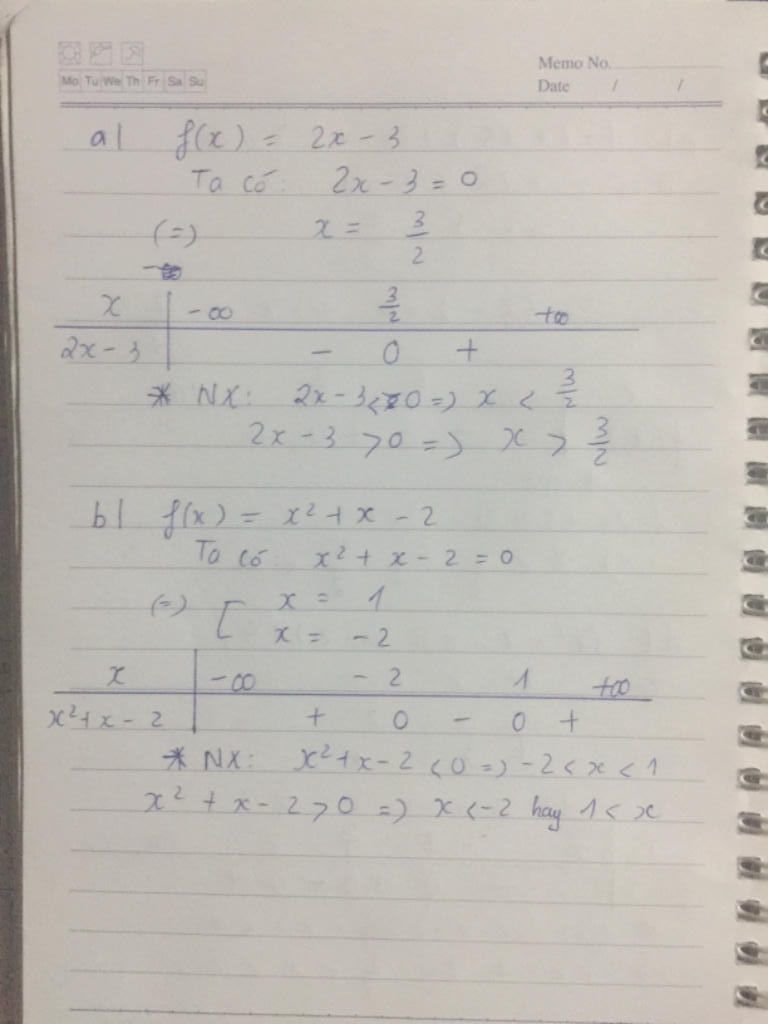 Memo No.
Mo Tu We Th Fr Sa Su
Date / /
a| f(x) = 2x - 3
Ta có: 2x - 3 = 0
(=) x = 3/2
x | -∞ 3/2 +∞
2x - 3 | - 0 +
* NX: 2x - 3 < 0 => x < 3/2
2x - 3 > 0 => x > 3/2
b| f(x) = x² + x - 2
Ta có: x² + x - 2 = 0
(=) [ x = 1
x = -2
x | -∞ -2 1 +∞
x² + x - 2 | + 0 - 0 +
* NX: x² + x - 2 < 0 => -2 < x < 1
x² + x - 2 > 0 => x < -2 hay 1 < x